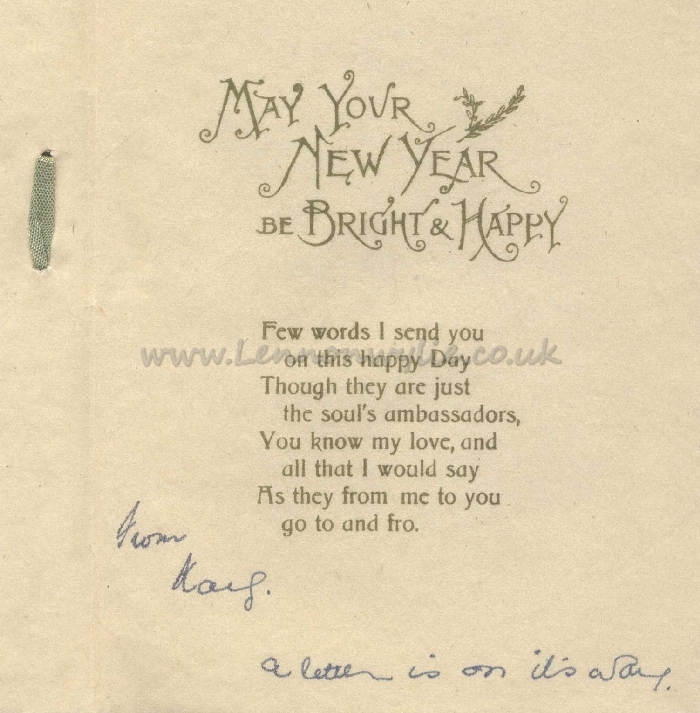 MAY YOUR
NEW YEAR
BE BRIGHT & HAPPY
Few words I send you
on this happy Day
Though they are just
the soul's ambassadors,
You know my love, and
all that I would say
As they from me to you
go to and fro.
www.Lennonwylie.co.uk
from
a letter is on it's way.